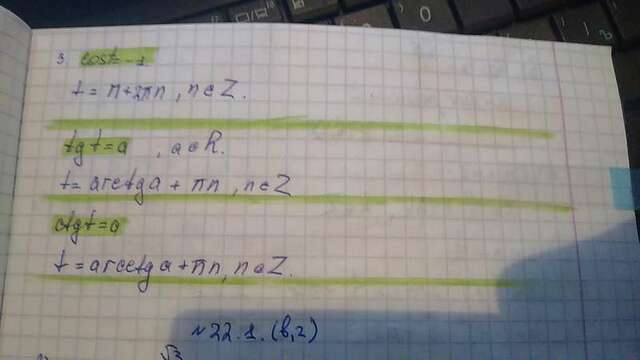 3. cost=-1
t = π+2πn, n∈Z.
tg t=a , a∈R.
t= arctga + πn, n∈Z
ctgt=a
t=arcctga+πn, n∈Z.
№22.1.(в,г)
√3